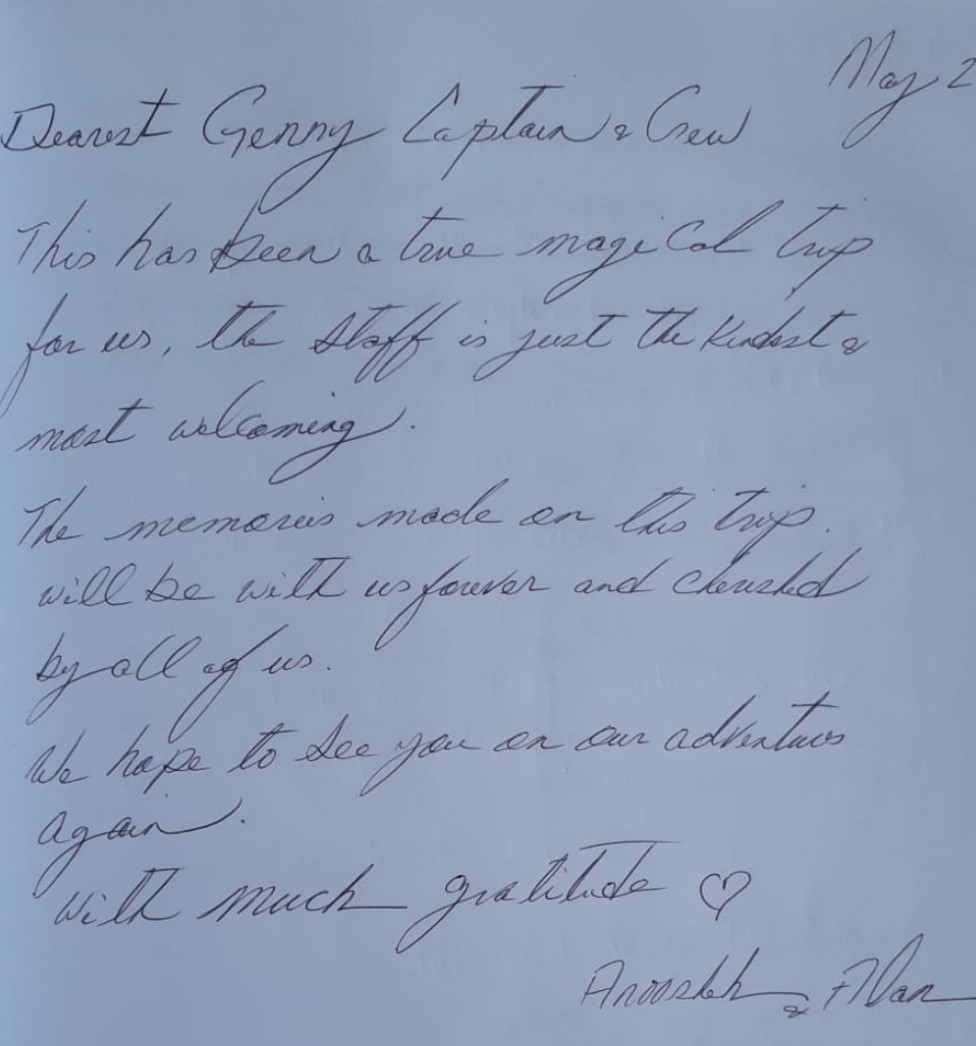 May 2
Dearest Genny Captain & Crew
This has been a true magical trip
for us, the staff is just the kindest &
most welcoming.
The memories made on this trip.
will be with us forever and cherished
by all of us.
We hope to see you on our adventures
again.
with much gratitude ♡
Anoosheh & Alan